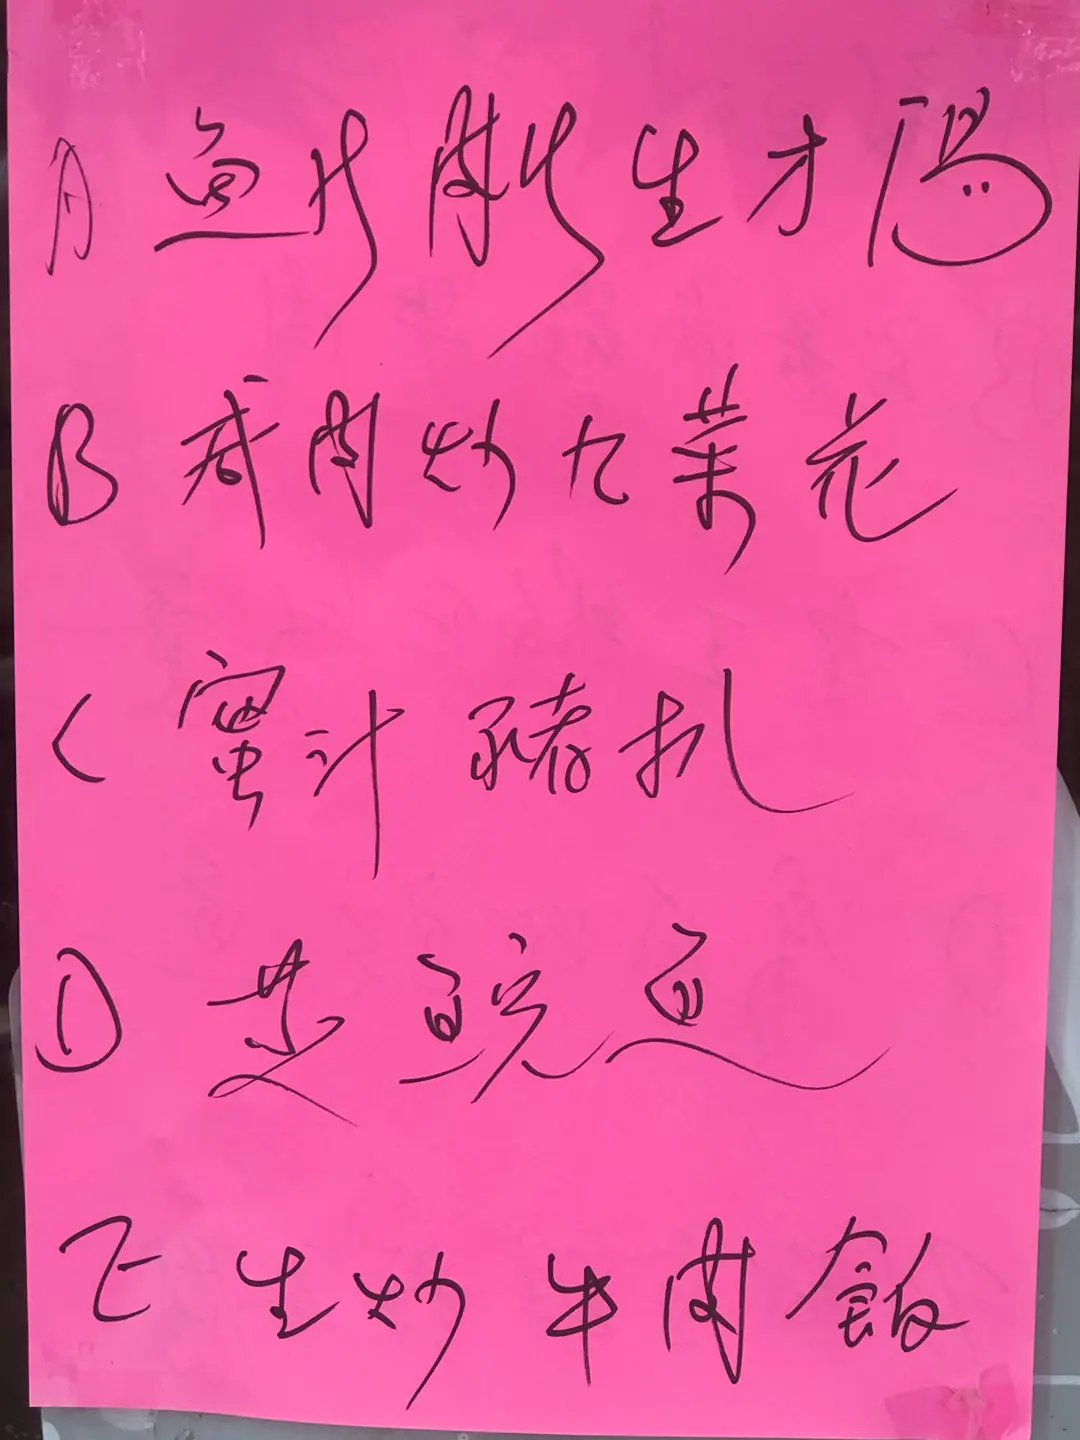 A 魚片肉片生才湯
B 咸肉炒九菜花
C 蜜汁豬扒
D 蒸鯇魚
E 生炒牛肉飯